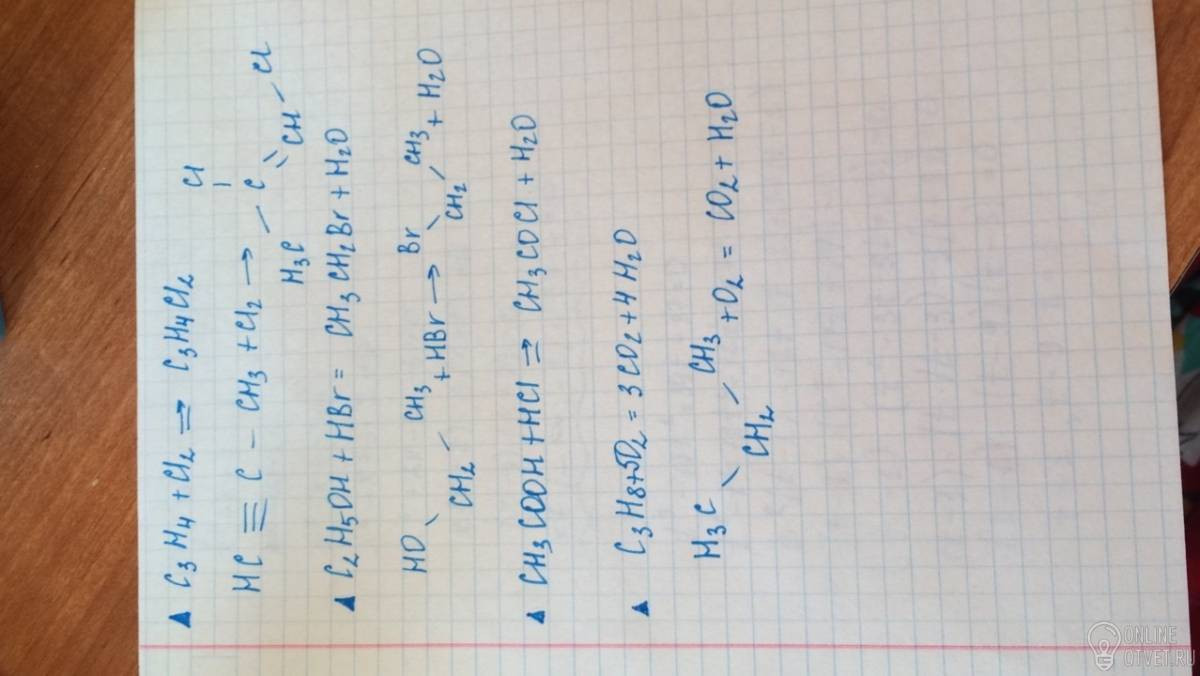 ▲ C₃H₄ + Cl₂ ⇒ C₃H₄Cl₂
Cl
HC ≡ C – CH₃ + Cl₂ → H₃C – C = CH – Cl
▲ C₂H₅OH + HBr = CH₃CH₂Br + H₂O
HO – CH₂ – CH₃ + HBr → Br – CH₂ – CH₃ + H₂O
▲ CH₃COOH + HCl ⇒ CH₃COCl + H₂O
▲ C₃H₈ + 5O₂ = 3CO₂ + 4H₂O
H₃C – CH₂ – CH₃ + O₂ = CO₂ + H₂O
ONLINE
OTVET.RU